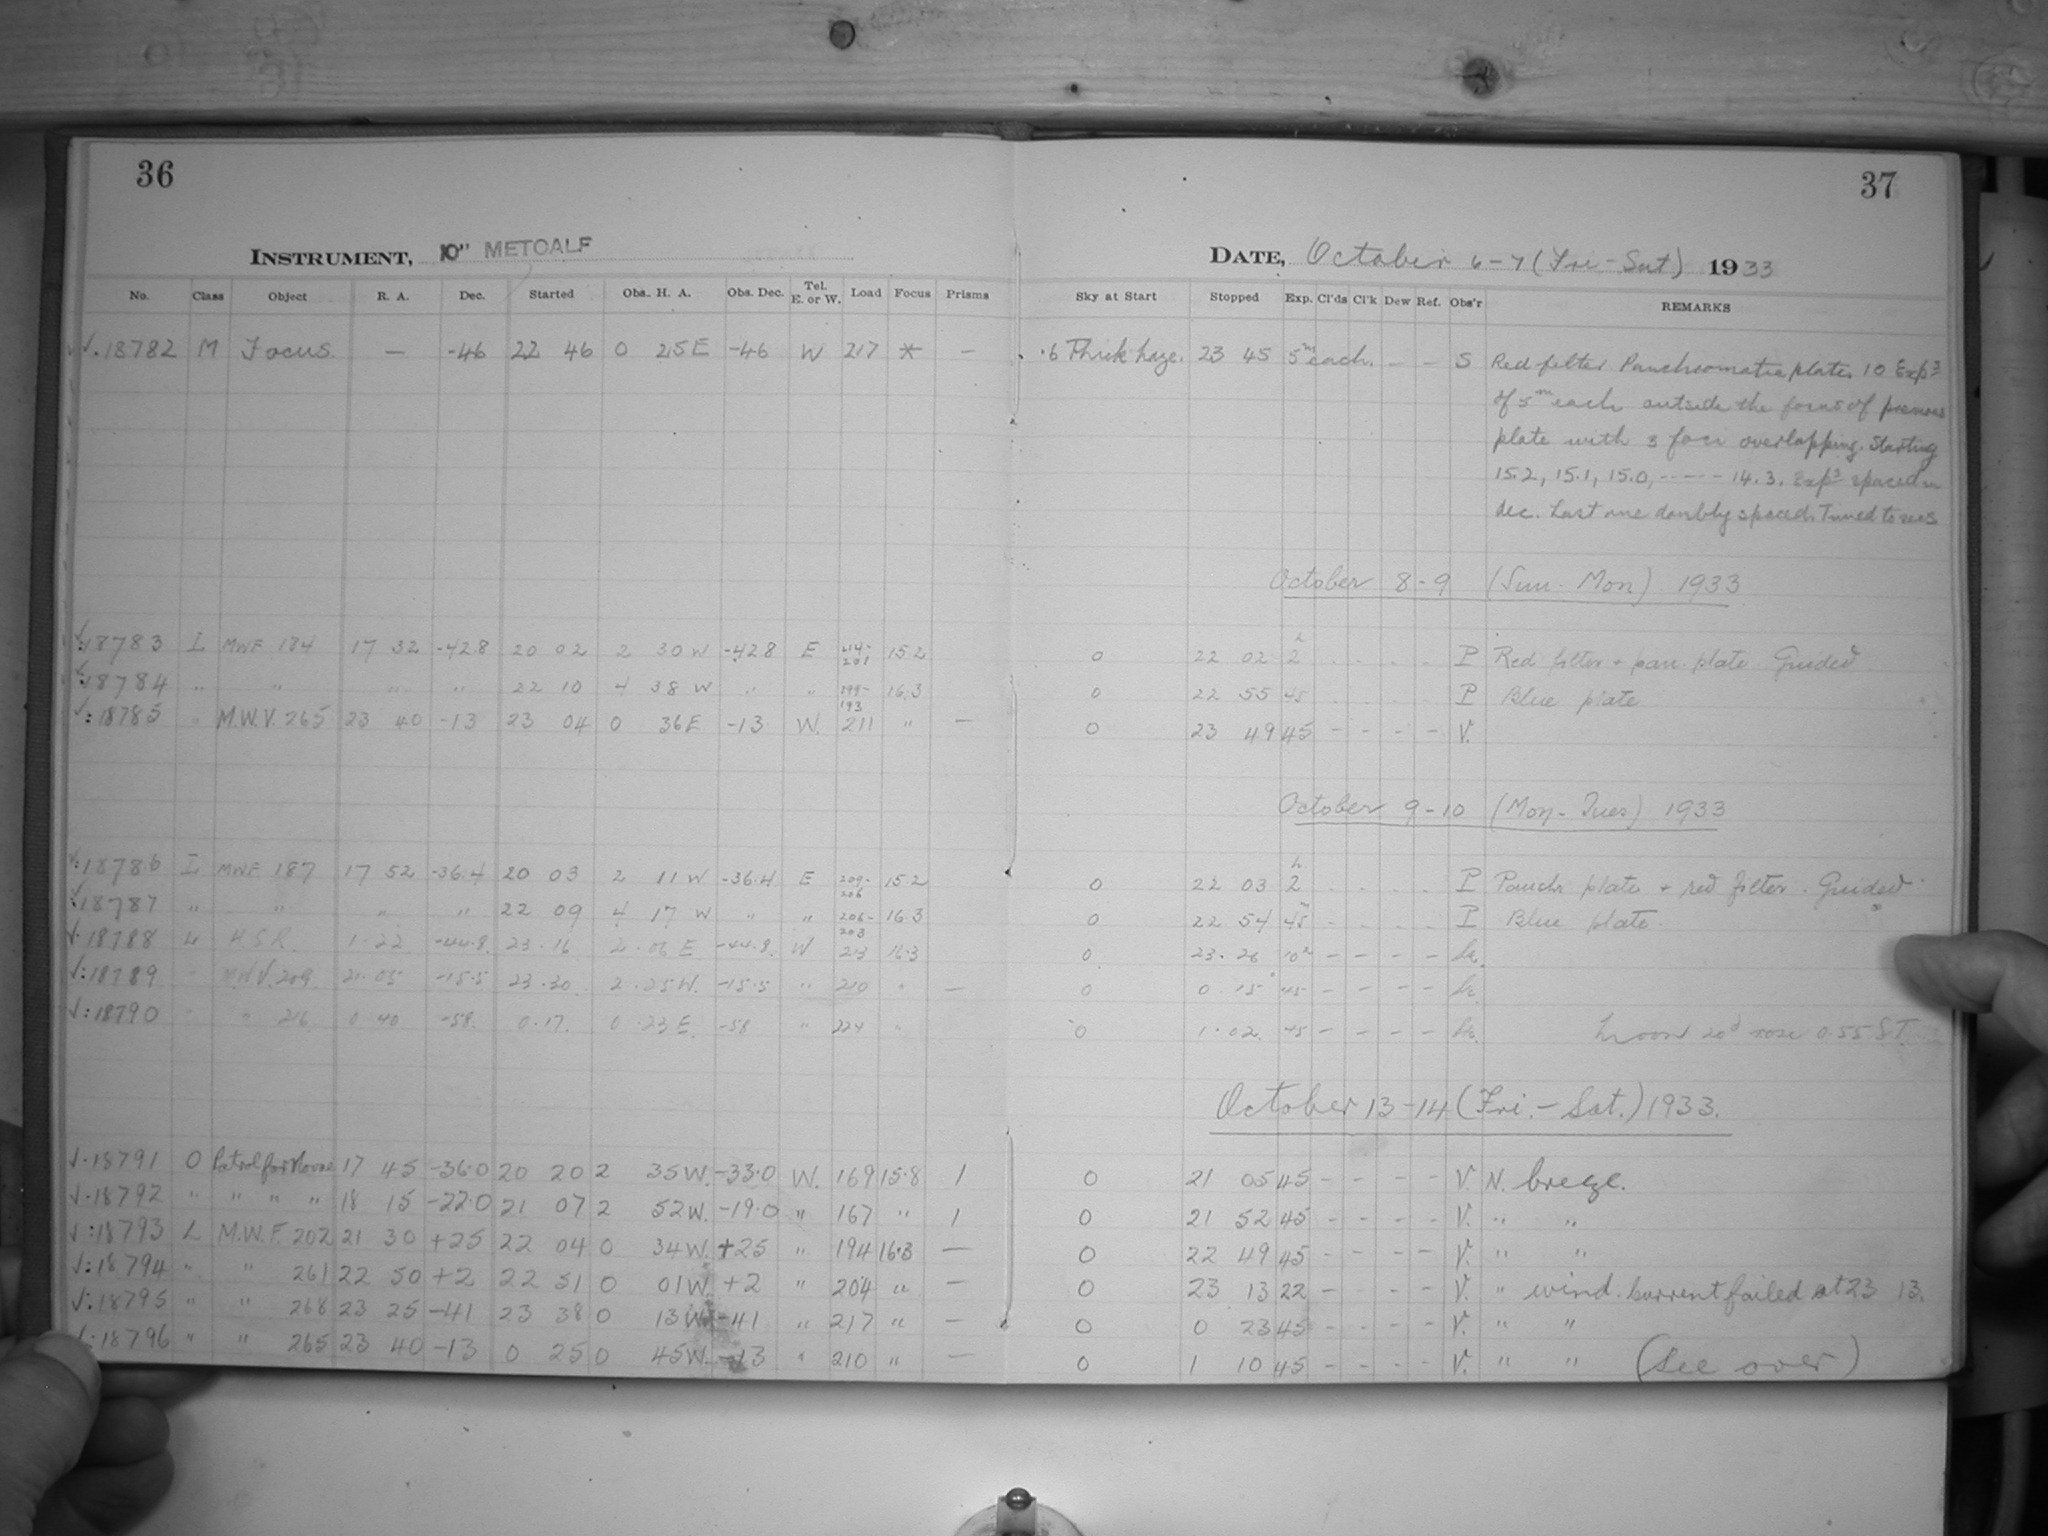 36
37
INSTRUMENT, 10" METCALF
DATE, October 6-7 (Fri-Sat) 1933
No. Class Object R. A. Dec. Started Obs. H. A. Obs. Dec. Tel. E. or W. Load Focus Prisms Sky at Start Stopped Exp. Cl'ds Cl'k Dew Ref. Obs'r REMARKS
√.18782 M Focus. — -46 22 46 0 215E -46 W 217 * — .6 Thick haze. 23 45 5m each. — — S Red filter Panchromatic plate. 10 Exps
of 5m each outside the focus of previous
plate with 3 foci overlapping. Starting
15.2, 15.1, 15.0, ----- 14.3. Exps spaced in
dec. Last one doubly spaced.
October 8-9 (Sun-Mon) 1933
√:18783 L MWF 184 17 32 -42.8 20 02 2 30 W -42.8 E 214-201 15.2 0 22 02 2h . . . . P Red filter + pan. plate. Guided
√:18784 " " " " 22 10 4 38 W " " 199-193 16.3 0 22 55 45 . . . . P Blue plate
√:18785 " M.W.V. 265 23 40 -13 23 04 0 36E -13 W. 211 " — 0 23 49 45 - - - - V.
October 9-10 (Mon-Tues) 1933
√:18786 L MWF 187 17 52 -36.4 20 03 2 11 W -36.4 E 209-206 15.2 0 22 03 2h . . . . P Panchr plate + red filter. Guided
√:18787 " " " " 22 09 4 17 W " " 206-203 16.3 0 22 54 45m - . . . P Blue plate.
√.18788 L HSR. 1.22 -44.8. 23.16 2.06 E -44.8. W 213 16.3 0 23.26 10 - - - -
√:18789 " M.W.V. 209. 21.05 -15.5 23.30. 2.25W. -15.5 " 210 " — 0 0 15 45 - - - -
√:18790 " " 216. 0 40 -58. 0.17. 0.23 E. -58 " 224 " 0 1.02. 45 - - - - Moon 20d rose 0.55 S.T.
October 13-14 (Fri.-Sat.) 1933.
√.18791 O Patrol for Novae 17 45 -36.0 20 20 2 35W. -33.0 W. 169 15.8 1 0 21 05 45 - - - - V. N. breeze.
√.18792 " " " " 18 15 -22.0 21 07 2 52W. -19.0 " 167 " 1 0 21 52 45 - - - - V. " "
√:18793 L M.W.F. 202 21 30 +25 22 04 0 34W. +25 " 194 16.3 — 0 22 49 45 - - - - V. " "
√:18794 " " 261 22 50 +2 22 51 0 01W. +2 " 204 " — 0 23 13 22 - - - - V. " wind. Current failed at 23 13.
√:18795 " " 268 23 25 -41 23 38 0 13W. -41 " 217 " — 0 0 23 45 - - - - V. " "
√:18796 " " 265 23 40 -13 0 25 0 45W. -13 " 210 " — 0 1 10 45 - - - - V. " " (See over)